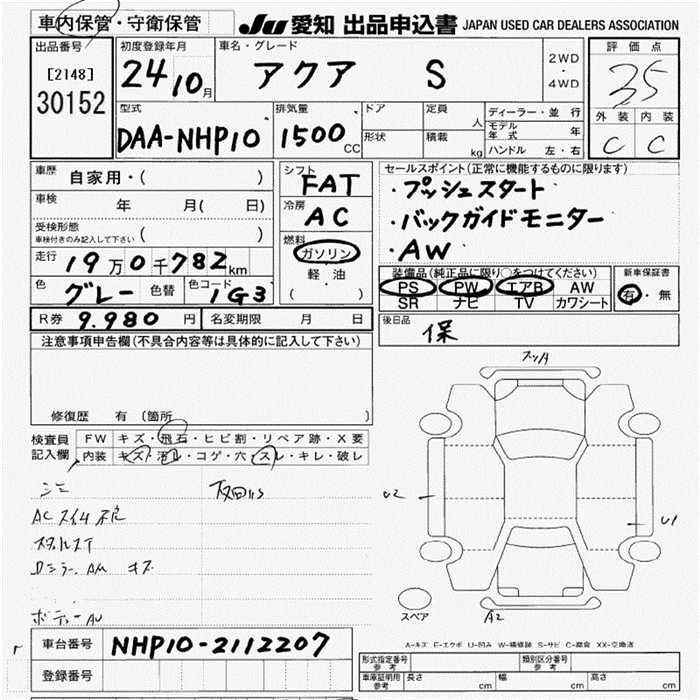 車内保管・守衛保管 JU愛知 出品申込書 JAPAN USED CAR DEALERS ASSOCIATION
出品番号 [2148] 30152
初度登録年月 24 10月
車名・グレード アクア S
2WD・4WD
評価点 35
外装 C 内装 C
型式 DAA-NHP10
排気量 1500 CC
ドア 形状
定員 人 積載 kg
ディーラー・並行
モデル年式 年
ハンドル 左・右
車歴 自家用・( )
車検 年 月( 日)
受検形態 車検付きのみ記入して下さい ( )
走行 19万0千782km
色 グレー 色替 色コード 1G3
シフト FAT
冷房 AC
燃料 ガソリン
軽・油
( )
セールスポイント(正常に機能するものに限ります)
・プッシュスタート
・バックガイドモニター
・AW
装備品(純正品に限り○をつけてください)
PS PW エアB AW
SR ナビ TV カワシート
新車保証書 有・無
R券 9.980 円 名変期限 月 日
後日品 保
注意事項申告欄(不具合内容等は具体的に記入して下さい)
修復歴 有 (箇所 )
検査員記入欄
FW キズ・飛石・ヒビ割・リペア跡・X要
内装 キズ・汚レ・コゲ・穴・スレ・キレ・破レ
シミ
AC スイルネ不良
ボディー AU
U2
U1
A2
スペア
A-キズ E-エクボ U-凹み W-補修跡 S-サビ C-腐食 XX-交換済
車台番号 NHP10-2112207
登録番号
形式指定番号 参考 類別区分番号 参考
車庫証明用 参考 長さ cm 幅 cm 高さ cm